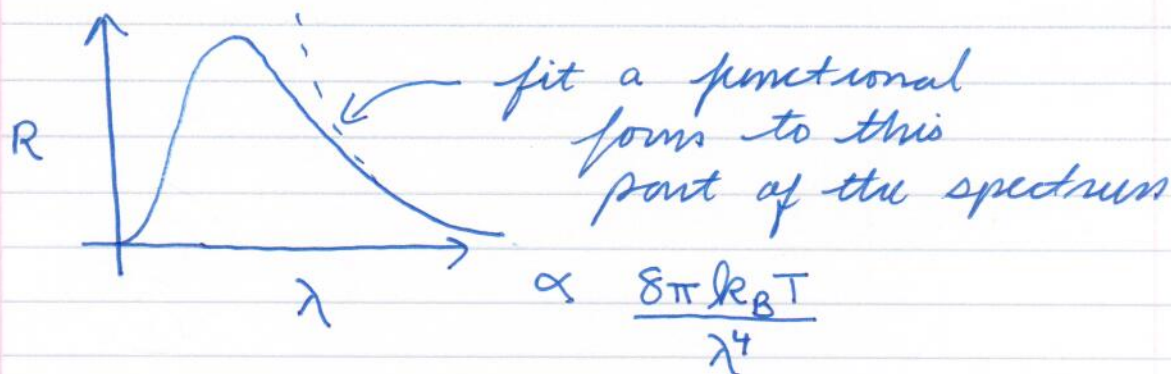 fit a functional
R
form to this
part of the spectrum
λ
∝ 8πk_BT / λ⁴